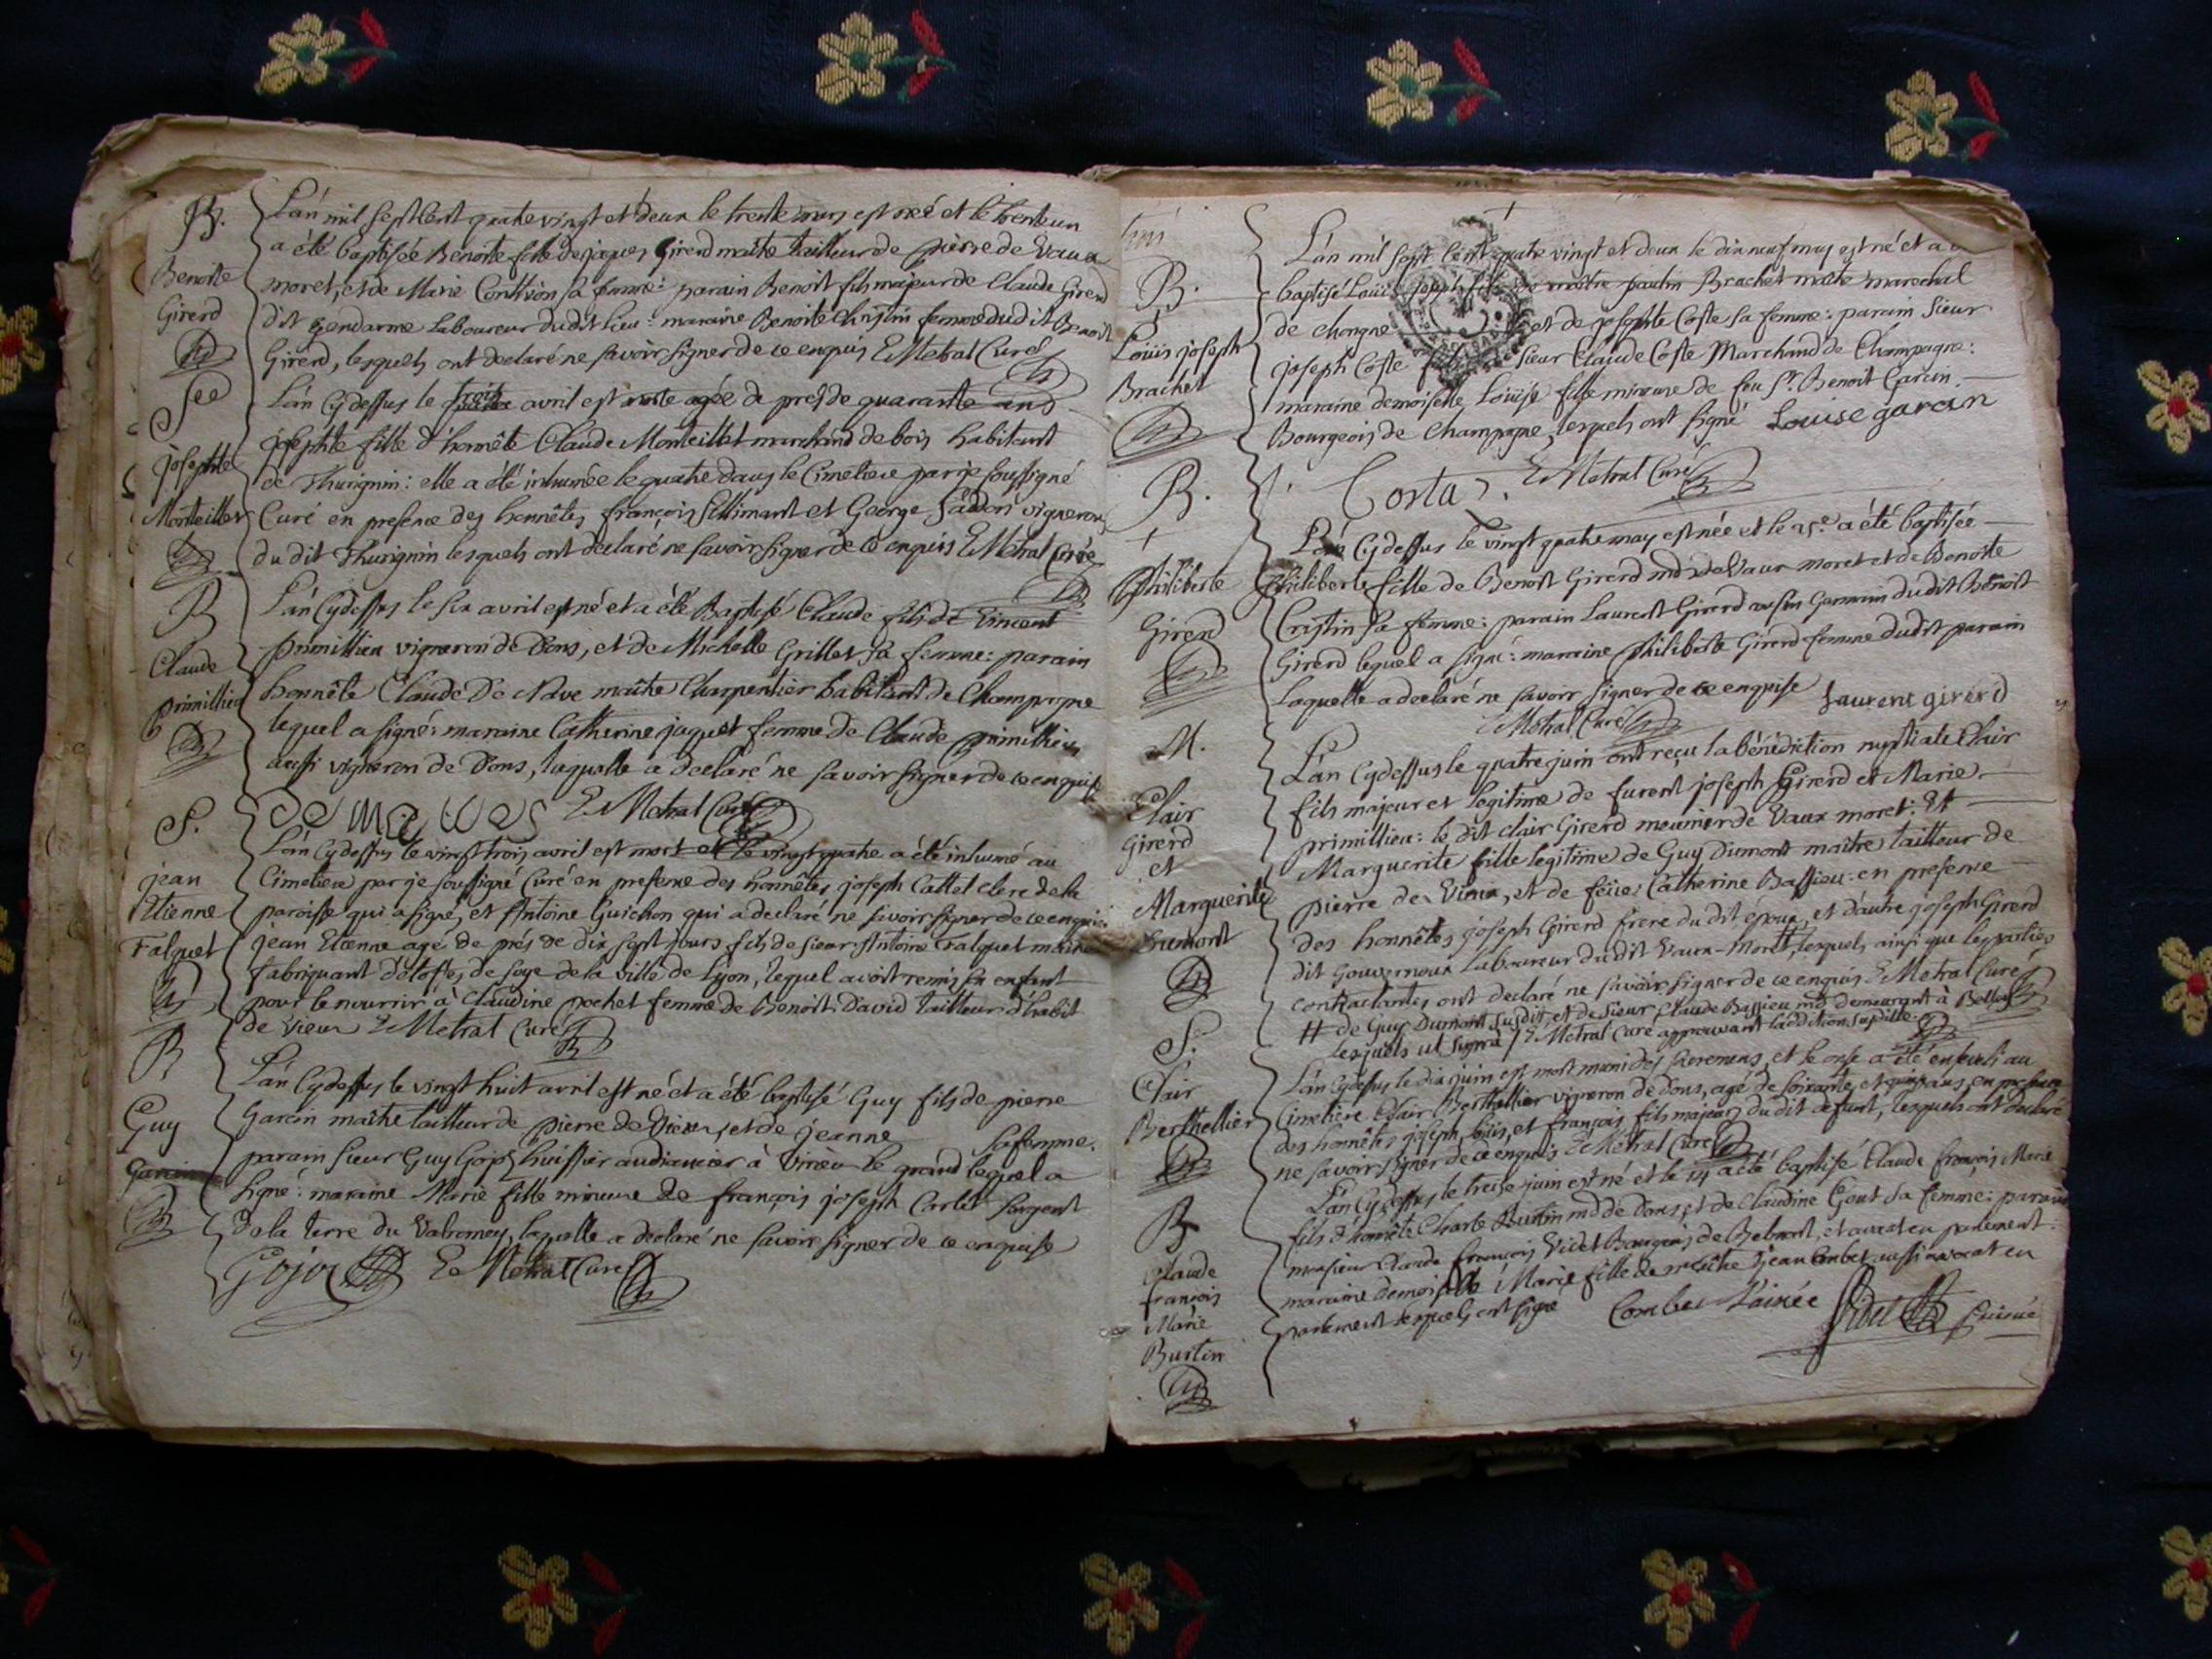 B.
Benoite
Girerd
L'an mil sept cent quatre vingt et deux le trente mars est née et le trente un
a été baptisée Benoite fille de jaques Girerd maître tailleur de pierre de Vaux
moret, et de Marie Conttion sa femme: parain Benoit fils majeur de Claude Girerd
dit gendarme laboureur dudit lieu: maraine Benoite Cristin femme dudit Benoit
Girerd, lesquels ont declaré ne savoir signer de ce enquis E Metral Curé
See
josephte
Monteillet
L'an cydessus le trois avril est morte agée de près de quarante ans
josephte fille d'honnête Claude Monteillet marchand de bois habitant
de Thurignin: elle a été inhumée le quatre dans le Cimetiere par je soussigné
Curé en presence des honnêtes françois Sillimant et George vigneron
du dit Thurignin lesquels ont declaré ne savoir signer de ce enquis E Metral Curé
B
Claude
primillieu
L'an cydessus le six avril est né et a été Baptisé Claude fils de Vincent
primillieu vigneron de Dons, et de Michelle Grillet sa femme: parain
honnête Claude De Nave maître Charpentier habitant de Champagne
lequel a signé: maraine Catherine jaquet femme de Claude primillieu
aussi vigneron de Dons, laquelle a declaré ne savoir signer de ce enquise
E Metral Curé
S.
jean
Etienne
Falquet
L'an cydessus le vingt trois avril est mort et le vingt quatre a été inhumé au
Cimetiere par je soussigné Curé en presence des honnêtes joseph Cattet clerc de la
paroisse qui a signé, et Antoine Guichon qui a declaré ne savoir signer de ce enquis
jean Etienne agé de près de dix sept jours fils de sieur Antoine Falquet maître
fabriquant d'etoffes de soye de la ville de Lyon, lequel avoit remis sn enfant
pour le nourrir à Claudine pochet femme de Benoit David tailleur d'habit
de vieux E Metral Curé
B
Guy
Garcin
L'an cydessus le vingt huit avril est né et a été baptisé Guy fils de pierre
Garcin maître tailleur de pierre de Vieux, et de jeanne sa femme.
parain sieur Guy Gojoz huissier audiancier à Virieu le grand lequel a
signé: maraine Marie fille mineure de françois joseph Carlet sergent
de la terre du Valromey, laquelle a declaré ne savoir signer de ce enquise
Gojoz E Metral Curé
B.
Loüis joseph
Brachet
L'an mil sept cent quatre vingt et deux le dix neuf may est né et a
baptisé Loüis joseph fils de maître paulin Brachet maître marechal
de Chongne et de josephte Coste sa femme: parain sieur
joseph Coste fils sieur Claude Coste Marchand de Champagne:
maraine demoiselle Loüise fille mineure de feu Sr. Benoit Garcin
Bourgeois de Champagne, lesquels ont signé Louise garcin
Costaz. E Metral Curé
B.
philiberte
Girerd
L'an cydessus le vingt quatre may est née et le 25e a été baptisée
philiberte fille de Benoit Girerd md de Vaux moret et de Benoite
Cristin sa femme: parain Laurent Girerd cousin Germain dudit Benoit
Girerd lequel a signé: maraine philiberte Girerd femme dudit parain
laquelle a declaré ne savoir signer de ce enquise laurent girerd
E Metral Curé
M.
Clair
Girerd
et
Marguerite
Dumont
L'an cydessus le quatre juin ont reçu la bénédiction nuptiale Clair
fils majeur et legitime de furent joseph Girerd et Marie
primillieu: le dit clair Girerd meunier de Vaux moret: Et
Marguerite fille legitime de Guy Dumont maître tailleur de
pierre de Vieux, et de feüe Catherine Bassieu: en presence
des honnêtes joseph Girerd frere du dit époux, et d'autre joseph Girerd
dit Gouvernoux laboureur du dit Vaux-Moret#, lesquels ainsi que les parties
contractantes ont declaré ne savoir signer de ce enquis E Metral Curé
# de Guy Dumont susdit et de sieur Claude Bassieu md demeurant à Belley
lesquels ut signra / E Metral Curé approuvant l'addition susditte
S.
Clair
Berthellier
L'an cydessus le dix juin est mort muni des sacremens, et le onse a été enseveli au
Cimetiere Clair Berthellier vigneron de Dons, agé de soixante et quinse ans, en presence
des honnêtes joseph, loüis, et françois fils majeurs du dit defunt, lesquels ont declaré
ne savoir signer de ce enquis E Metral Curé
B
Claude
françois
Marie
Burtin
L'an cydessus le treise juin est né et le 14 a été baptisé Claude françois Marie
fils d'honnête Charle Burtin md de Dons, et de Claudine Gout sa femme: parain
monsieur Claude françois Videt Bourgeois de Belmont, et avocat en parlement:
maraine demoiselle Marie fille de maître jean Combet aussi avocat en
parlement lesquels ont signé Combet L'ainée Videt puisné